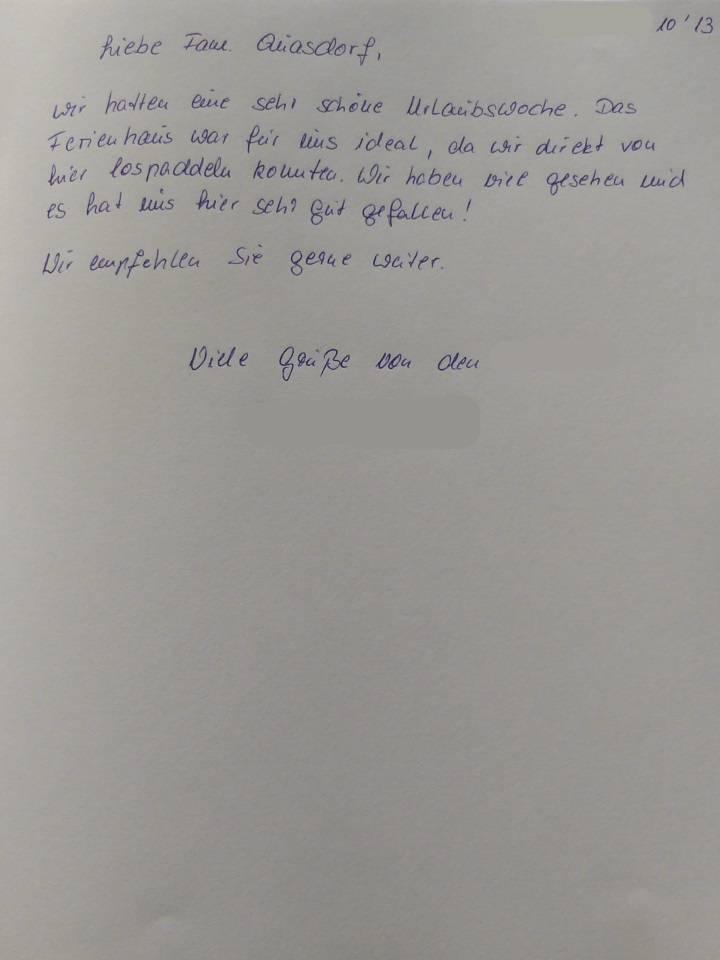 10'13
Liebe Fam. Quasdorf,
wir hatten eine sehr schöne Urlaubswoche. Das
Ferienhaus war für uns ideal, da wir direkt von
hier lospaddeln konnten. Wir haben viel gesehen und
es hat uns hier sehr gut gefallen!
Wir empfehlen Sie gerne weiter.
Viele Grüße von den